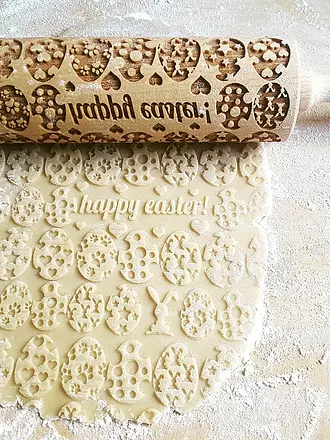 happy easter!
happy easter!